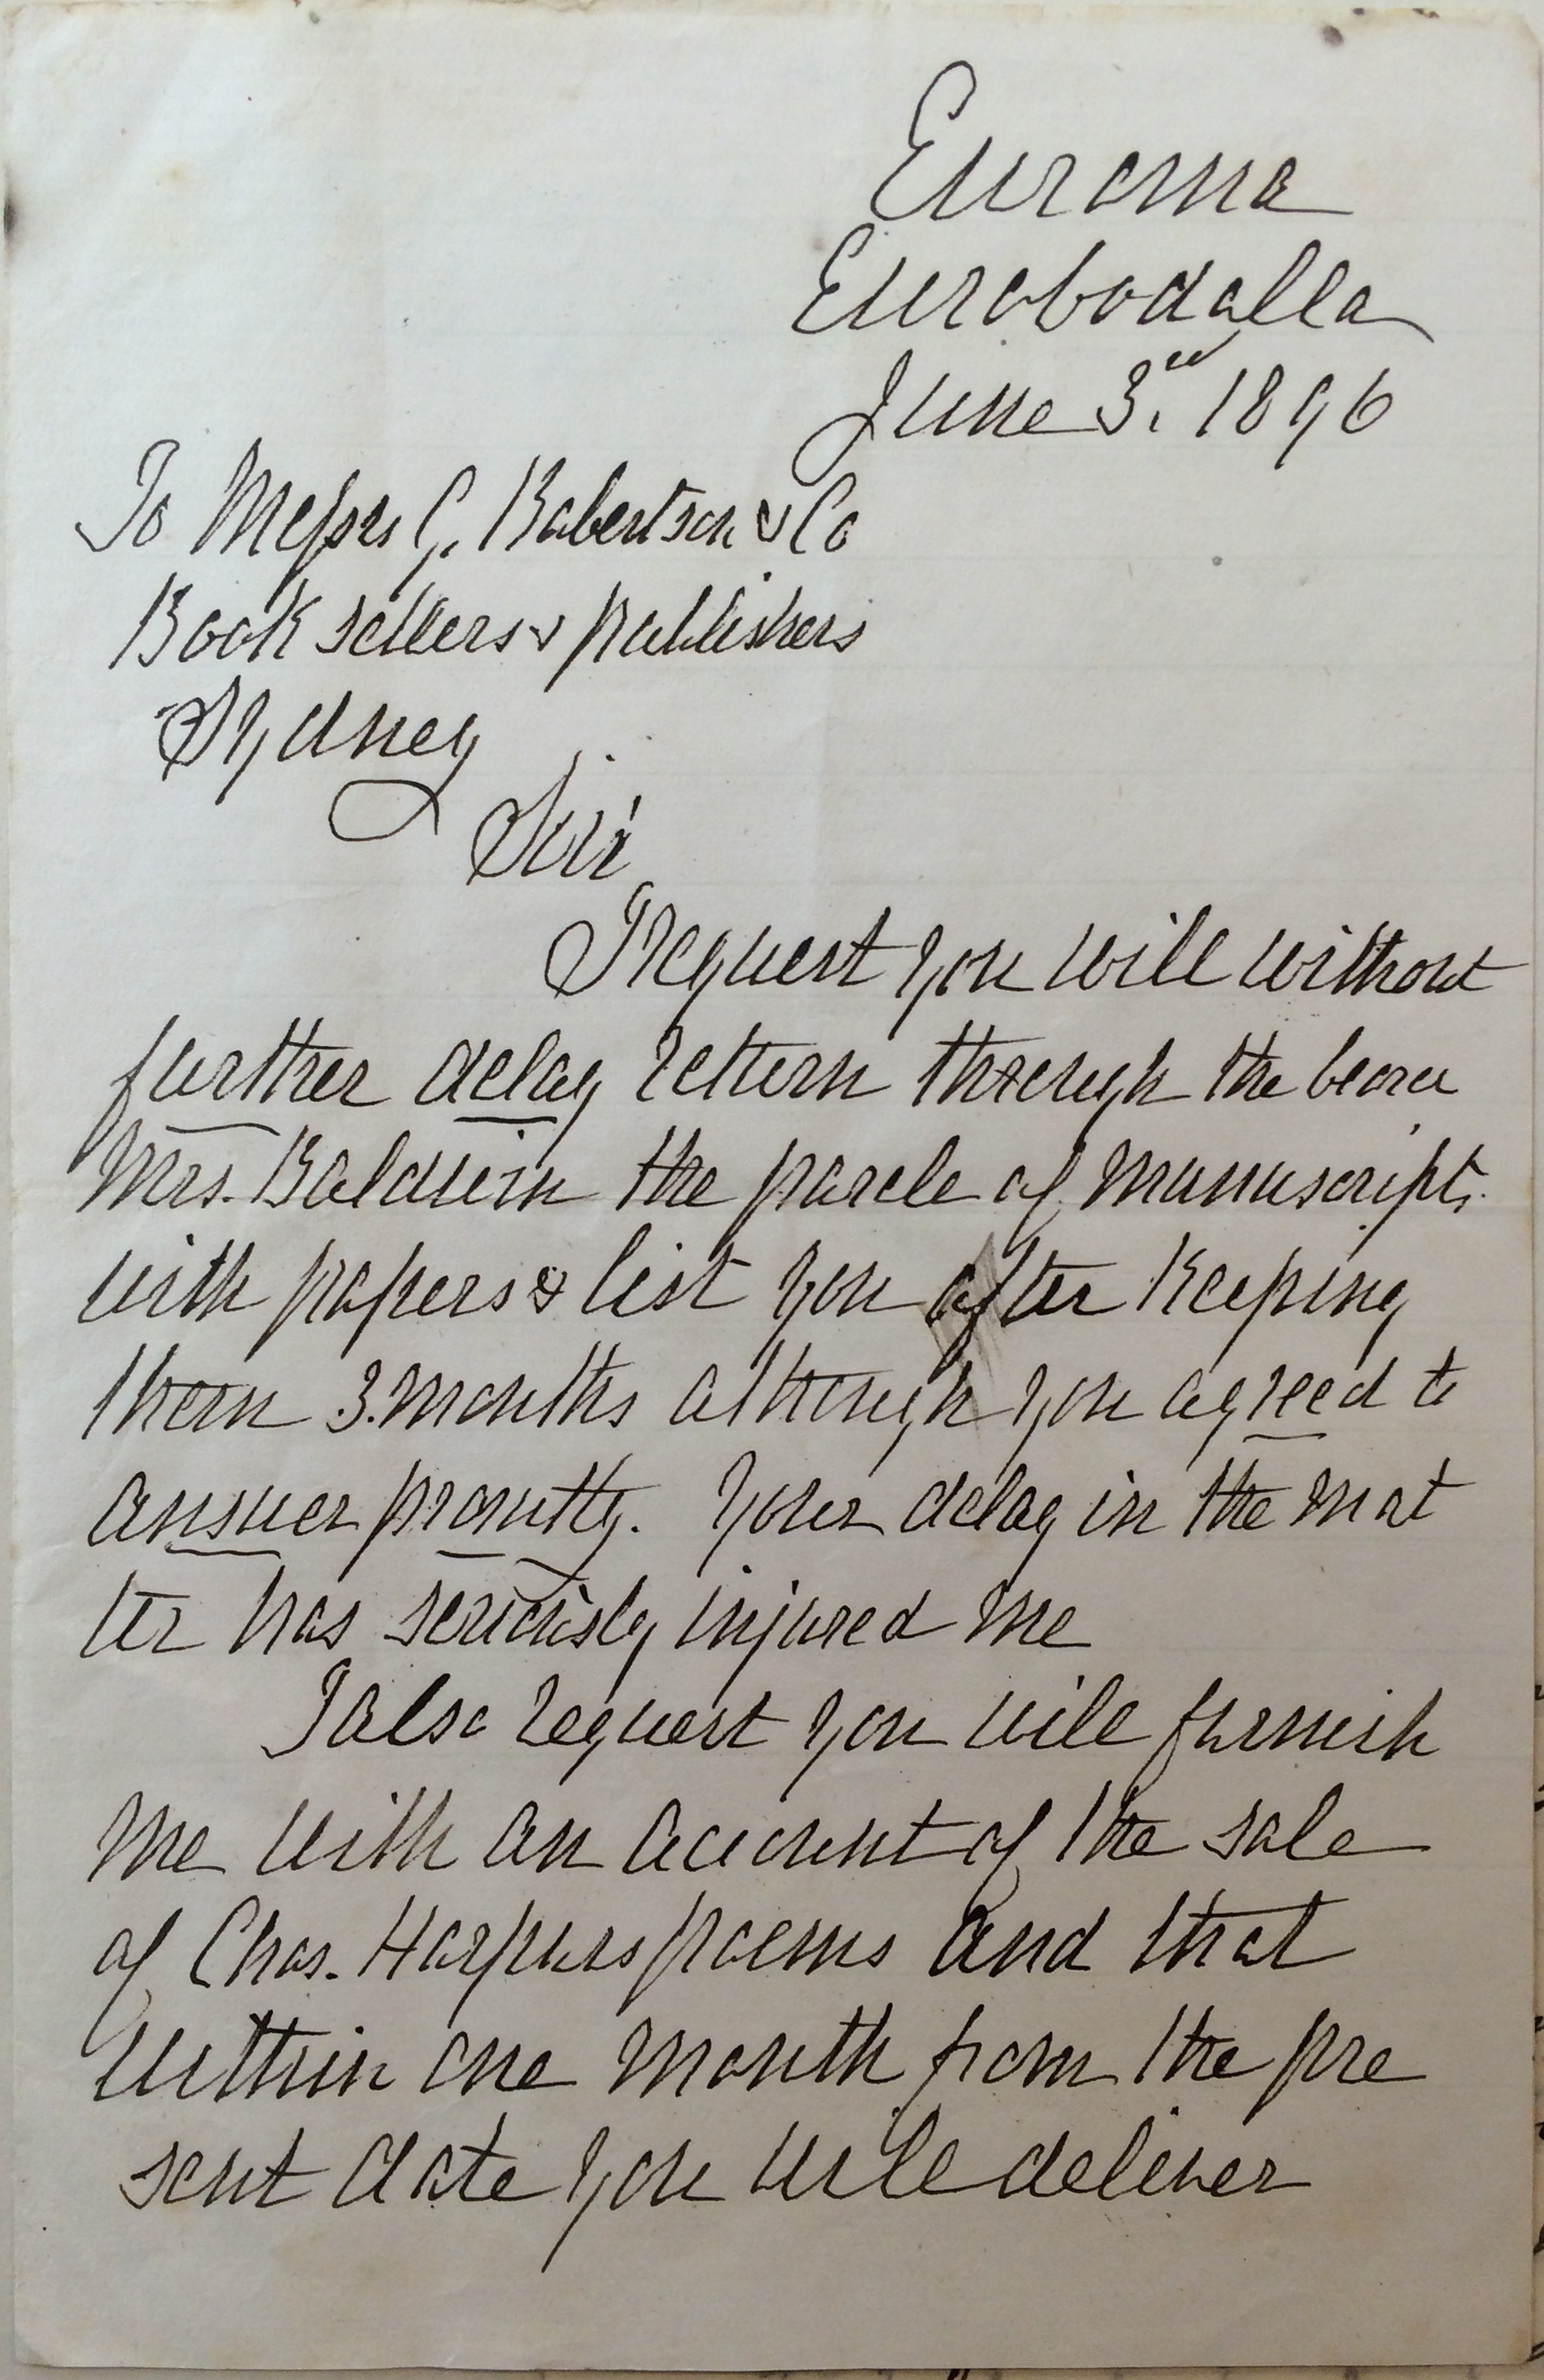 Euroma
Eurobodalla
June 3rd. 1896
To Messrs G. Robertson & Co
Book sellers & publishers
Sydney
Sir
I request you will without
further delay return through the bearer
Mrs. Baldwin the parcle of manuscripts
with papers & list you after keeping
them 3. months although you agreed to
answer promtly. Your delay in the mat
ter has seriously injured me
I also request you will furnish
me with an account of the sale
of Chas. Harpurs poems and that
within one month from the pre
sent date you will deliver